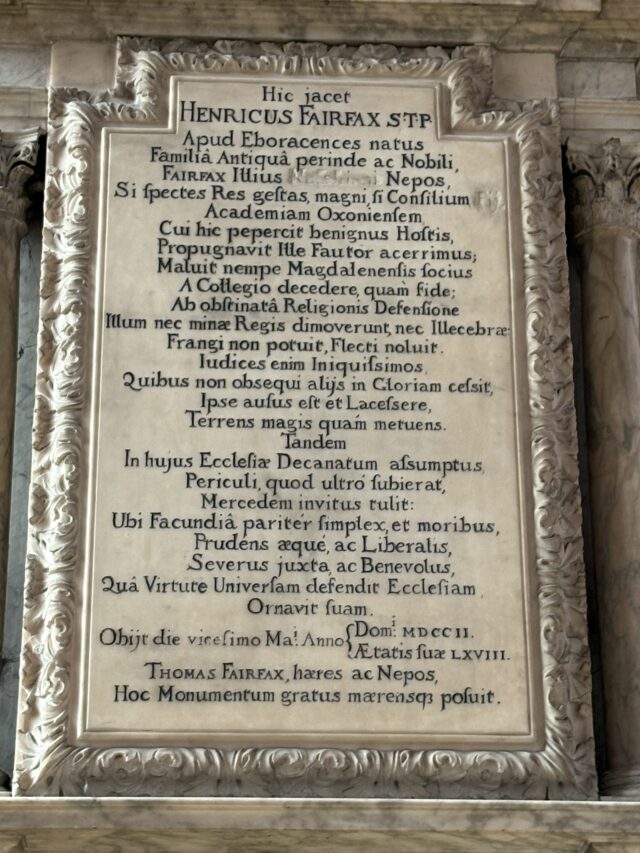 Hic jacet
HENRICUS FAIRFAX S·T·P
Apud Eboracences natus
Familiâ Antiquâ perinde ac Nobili,
FAIRFAX Illius Nepos,
Si ſpectes Res geſtas, magni, ſi Conſilium
Academiam Oxonienſem
Cui hic pepercit benignus Hoſtis,
Propugnavit Ille Fautor acerrimus;
Maluit nempe Magdalenenſis ſocius
A Collegio decedere, quam fide;
Ab obſtinatâ Religionis Defenſione
Illum nec minæ Regis dimoverunt, nec Illecebræ:
Frangi non potuit, Flecti noluit.
Iudices enim Iniquiſsimos,
Quibus non obsequi alijs in Gloriam ceſsit,
Ipse auſus eſt et Laceſsere,
Terrens magis quam metuens.
Tandem
In hujus Eccleſiæ Decanatum aſsumptus
Periculi, quod ultro ſubierat,
Mercedem invitus tulit:
Ubi Facundiâ pariter ſimplex, et moribus,
Prudens æque, ac Liberalis,
Severus juxta, ac Benevolus,
Quâ Virtute Univerſam defendit Eccleſiam
Ornavit ſuam.
Obijt die viceſimo Maı̇. Anno { Domı̇: MDCCII.
Ætatis ſuæ LXVIII.
THOMAS FAIRFAX, hæres ac Nepos,
Hoc Monumentum gratus mærensqꝫ poſuit.